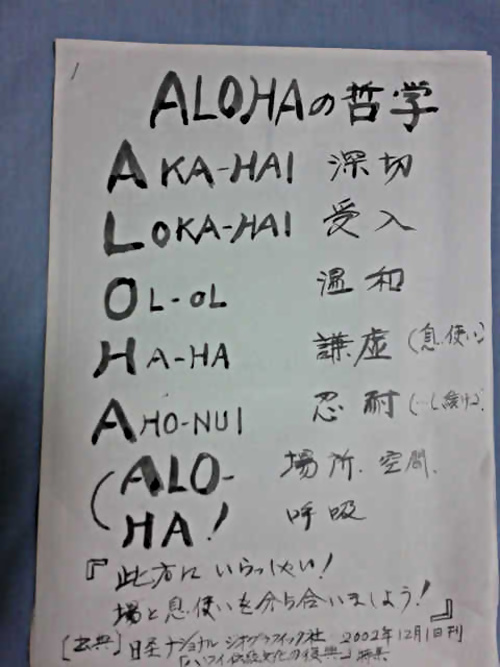 1
ALOHAの哲学
AKA-HAI 深切
LOKA-HAI 受入
OL-OL 温和
HA-HA 謙虚(息使い)
AHO-NUI 忍耐(…し続ける)
(ALO- 場所.空間.
HA! 呼吸
『此方にいらっしゃい!
場と息使いを分ち合いましょう!』
[出典]日経ナショナルジオグラフィック社 2002年12月1日刊
「ハワイ伝統文化の復興」特集